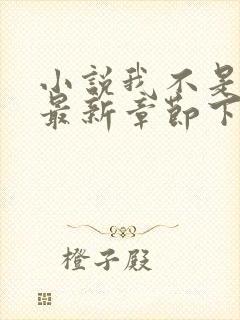 小説我不是
最新章節下
橙子殿